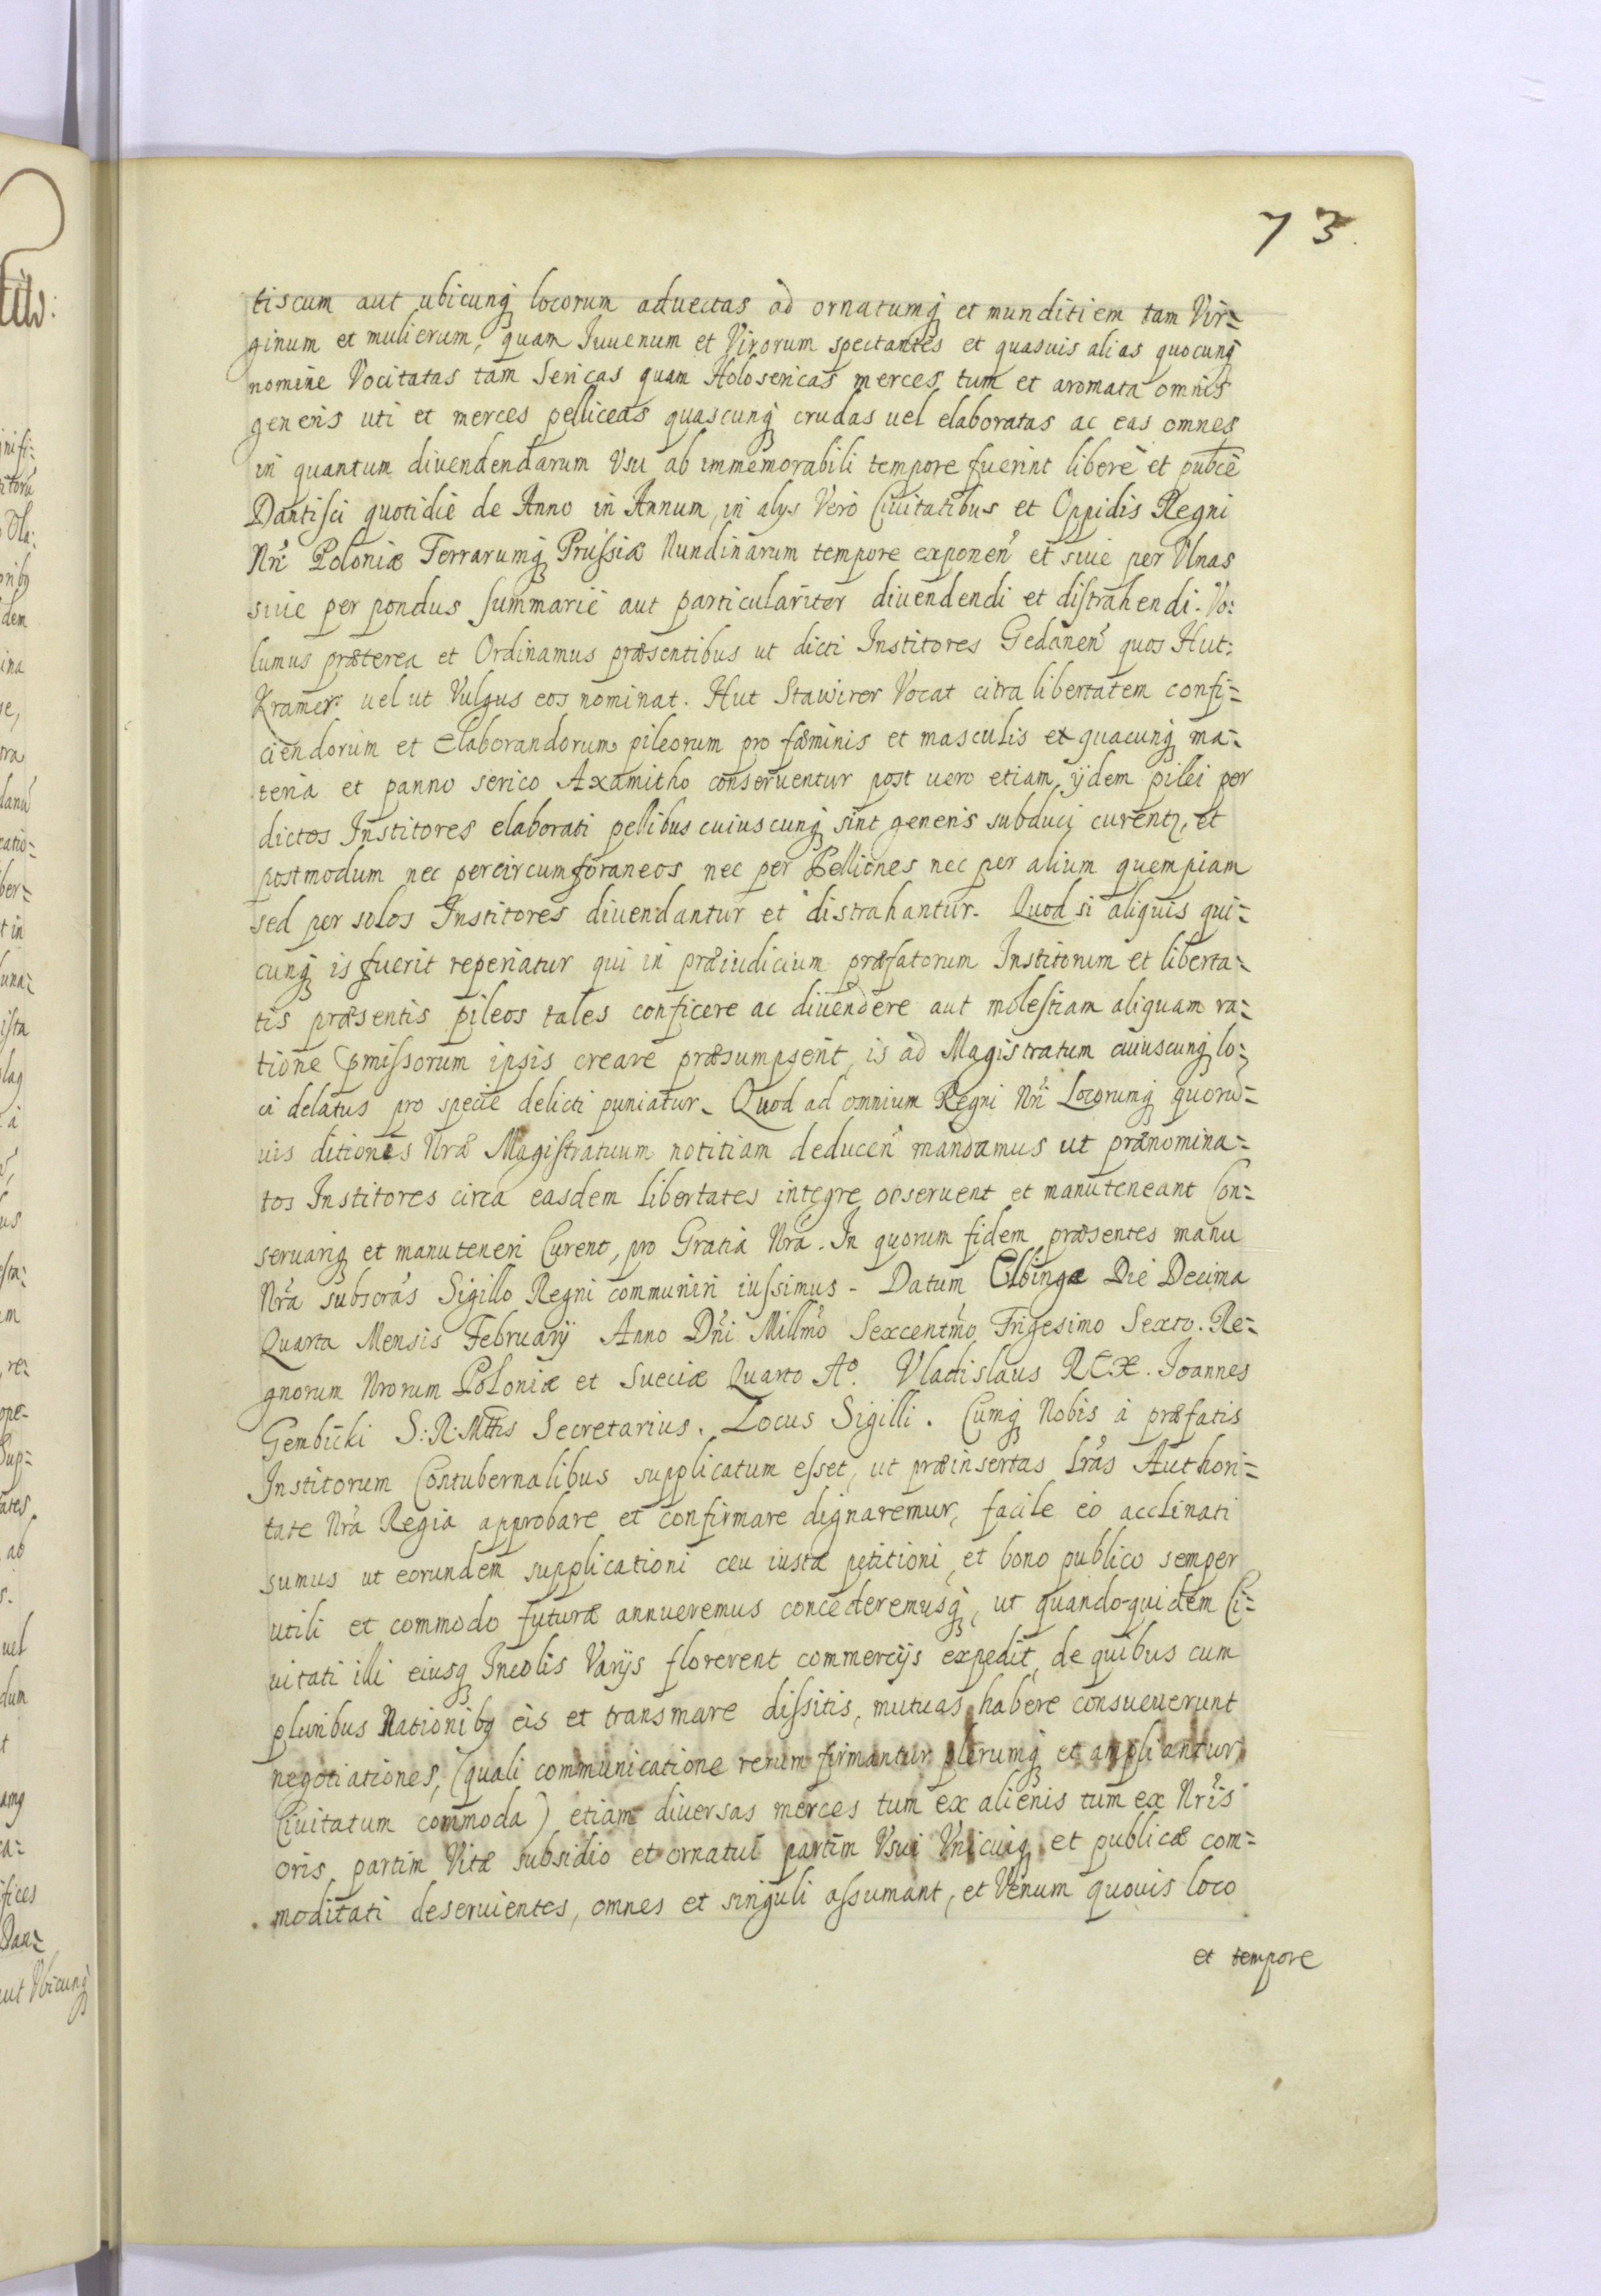 73.
tiscum aut ubicunq locorum aduectas ad ornatumq et munditiem tam Vir=
ginum et mulierum, quam Iuuenum et Virorum spectantes et quasuis alias quocunq
nomine Vocitatas tam Sericas quam Holosericas merces tum et aromata omnis
generis uti et merces pelliceas quascunq crudas uel elaboratas ac eas omnes
in quantum diuendendarum Vsu ab immemorabili tempore fuerint liberè et pubcè
Dantisci quotidiè de Anno in Annum, in alys Verò Ciuitatibus et Oppidis Regni
Nri Poloniæ Terrarumq Prussiæ Nundinarum tempore exponen et siue per Vlnas
siue per pondus summariè aut particulariter diuendendi et distrahendi. Vo:
lumus præterea et Ordinamus præsentibus ut dicti Institores Gedanen quos Hut:
Kramer uel ut Vulgus eos nominat. Hut Stawirer Vocat citra libertatem confi=
ciendorum et Elaborandorum pileorum pro fæminis et masculis ex quacunq ma=
teria et panno serico Axamitho conseruentur post uero etiam ijdem pilei per
dictos Institores elaborati pellibus cuiuscunq sint generis subduci curent, et
postmodum nec percircumforaneos nec per Pelliones nec per alium quempiam
sed per solos Institores diuendantur et distrahantur. Quod si aliquis qui=
cunq is fuerit reperiatur qui in præiudicium præfatorum Institorum et liberta=
tis præsentis pileos tales conficere ac diuendere aut molestiam aliquam ra=
tione pmissorum ipsis creare præsumpserit, is ad Magistratum cuiuscunq lo=
ci delatus pro specie delicti puniatur. Quod ad omnium Regni Nri Locorumq quoru=
uis ditiones Nræ Magistratuum notitiam deducen mandamus ut prænomina=
tos Institores circa easdem libertates integre obseruent et manuteneant Con=
seruariq et manuteneri Curent, pro Gratia Nra. In quorum fidem præsentes manu
Nra subscras Sigillo Regni communiri iussimus. Datum Elbingæ Die Decima
Quarta Mensis Februarij Anno Dni Millmo Sexcentmo Trigesimo Sexto. Re=
gnorum Nrorum Poloniæ et Sueciæ Quarto Ao. Vladislaus REX. Ioannes
Gembicki S: R: Mttis Secretarius. Locus Sigilli. Cumq Nobis à præfatis
Institorum Contubernalibus supplicatum esset, ut præinsertas Lras Authori=
tate Nra Regia approbare et confirmare dignaremur, facile eò acclinati
sumus ut eorundem supplicationi ceu iustæ petitioni, et bono publico semper
utili et commodo futuræ annueremus concederemusq, ut quando-quidem Ci=
uitati illi eiusq Incolis Varijs florerent commercijs expedit, de quibus cum
pluribus Nationibq eis et transmare dissitis, mutuas habere consueuerunt
negotiationes, (quali communicatione rerum firmantur plerumq et ampliantur
Ciuitatum commoda) etiam diuersas merces tum ex alienis tum ex Nris
oris partim Vitæ subsidio et ornatui partim Vsui Vnicuiq et publicæ com=
moditati deseruientes, omnes et singuli assumant, et Venum quouis loco
et tempore